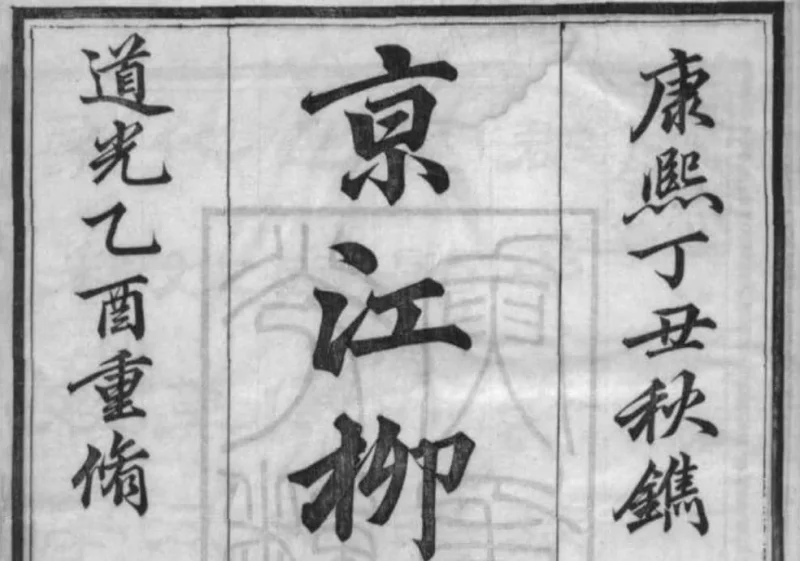 康熙丁丑秋鐫
京江柳
道光乙酉重脩